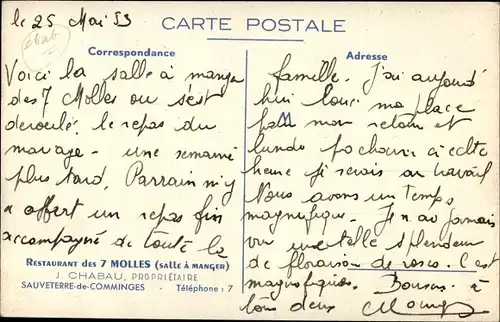 le 25 Mai 53
CARTE POSTALE
Correspondance
Voici la salle à manger
des 7 Molles ou s'est
deroulé le repas du
mariage - une semaine
plus tard, Parrain m'y
a offert un repas fin
accompagné de toute la
RESTAURANT des 7 MOLLES (SALLE À MANGER)
J. CHABAU, PROPRIÉTAIRE
SAUVETERRE-de-COMMINGES - Téléphone : 7
Adresse
famille. J'ai aujourd'
hui loué ma place
pour mon retour et
lundi prochain à cette
heure je serais au travail
Nous avons un temps
magnifique. Je n'ai jamais
vu une telle splendeur
de floraison de roses. C'est
magnifique. Bonsoir à
tous deux